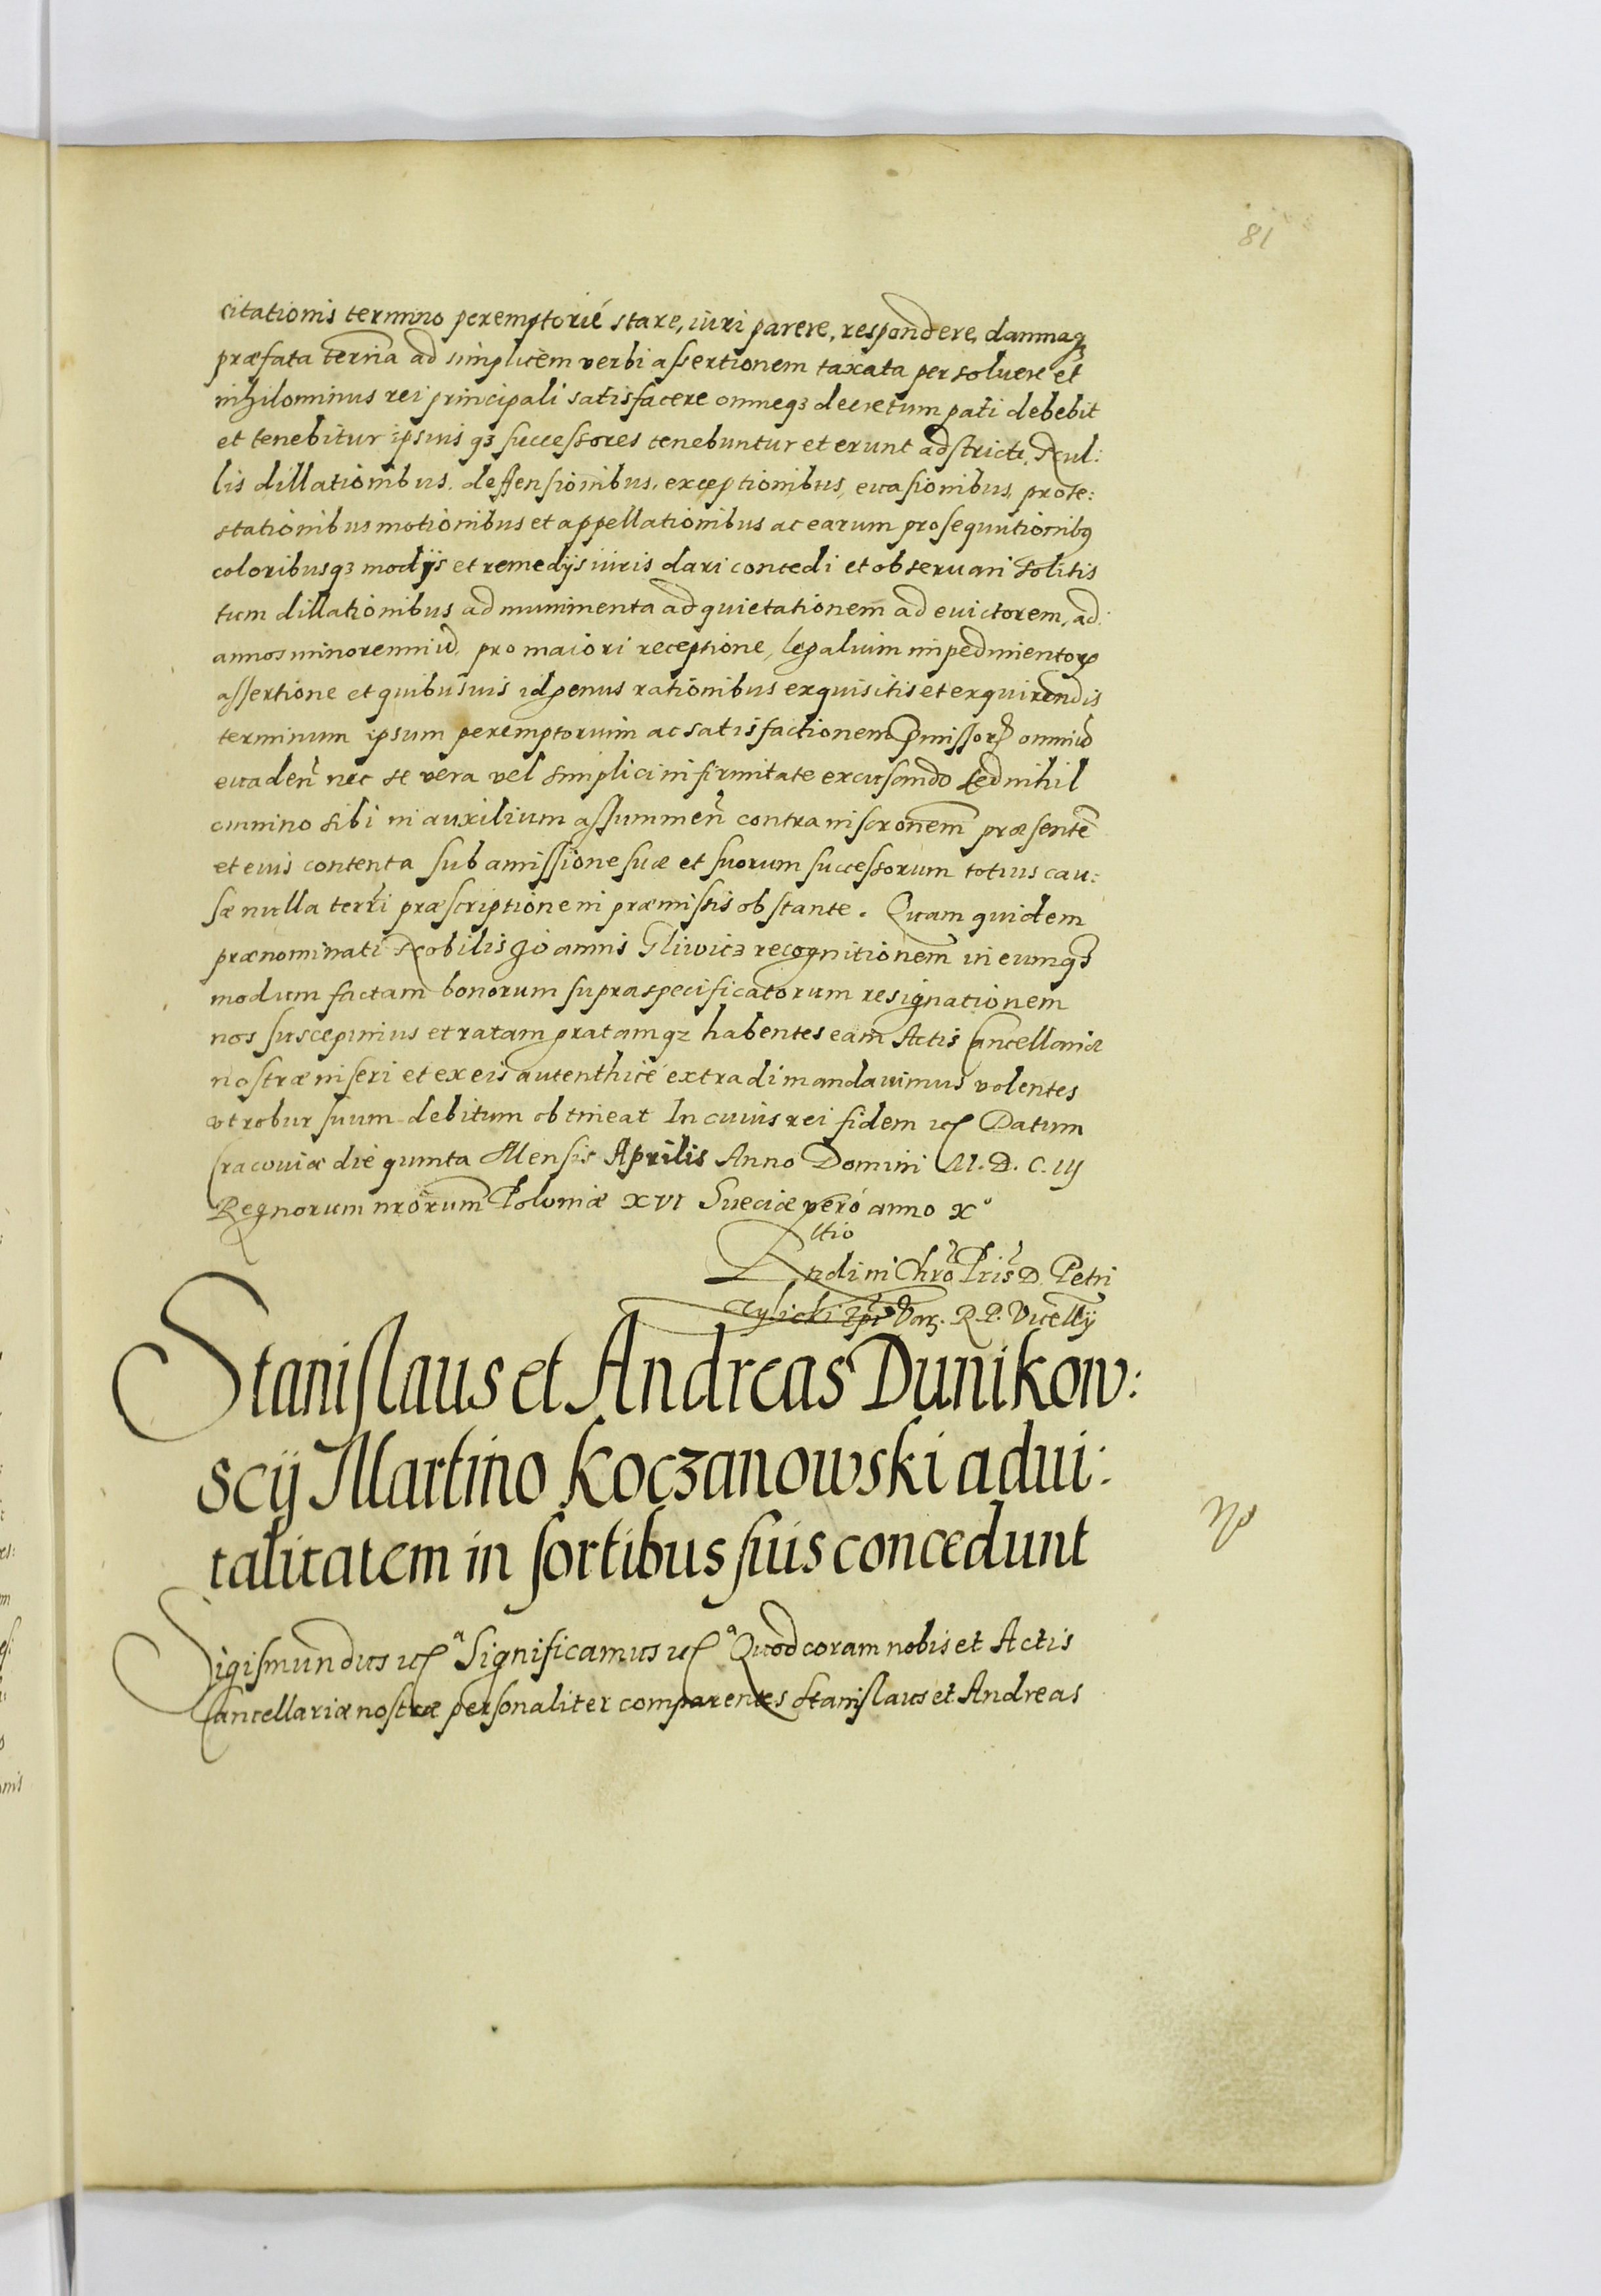 81
citationis termino peremptorié stare, iuri parere, respondere, damnaqȝ
præfata terña ad simplicem verbi assertionem taxata persoluere et
nihilominus rei principali satisfacere omneqȝ decretum pati debebit
et tenebitur ipsius qȝ successores tenebuntur et erunt adstricti. Nul:
lis dillationibus. deffensionibus. exceptionibus, euasionibus, prote:
stationibus motionibus et appellationibus ac earum prosequutionibꝰ
coloribusqȝ modijs et remedijs iuris dari concedi et obseruari solitis
tum dillationibus ad munimenta ad quietationem ad euictorem, ad
annos minorenniũ, pro maiori receptione, legalium impedimentoꝝ
assertione et quibusuis id genus rationibus exquisitis et exquirendis
terminum ipsum peremptorium ac satisfactionem p̃missoꝝ omniũ
euadeñ nec se vera vel simplici infirmitate excusando sed nihil
omnino sibi in auxilium assummeñ contra inscr̃onem præsentẽ
et eius contenta sub amissione suæ et suorum successorum totius cau:
sæ nulla terr̃i præscriptione in præmissis obstante. Quam quidem
prænominati Nobilis Joannis Gliwicz recognitionem in eumqȝ
modum factam bonorum supraspecificatorum resignationem
nos suscepimus et ratam gratamqȝ habentes eam Actis Cancellariæ
nostræ inseri et ex eis autenthicè extradi mandauimus volentes
vt robur suum debitum obtineat In cuius rei fidem etc Datum
Cracouiæ die quinta Mensis Aprilis Anno Domini M. D. C. iij
Regnorum nr̃orum Poloniæ XVI Sueciæ veró anno X°
Rltio
Rndi in Chr̃o Pr̃is D. Petri
Tylicki Ep̃i Var. R. P. Vicecllrij
Stanislaus et Andreas Dunikow:
scij Martino Koczanowski adui:
talitatem in sortibus suis concedunt
Sigismundus etcª Significamus etcª Quod coram nobis et Actis
Cancellariæ nostræ personaliter comparentes Stanislaus et Andreas